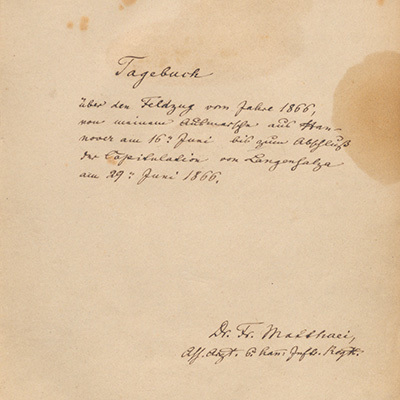 Tagebuch
über den Feldzug vom Jahre 1866,
von meinem Ausmarsche aus Han-
nover am 16ⁿ Juni bis zum Abschluß
der Capitulation von Langensalza
am 29ⁿ Juni 1866.
Dr. Fr. Matthaei,
Ass. Arzt. b. han: Inft. Regt.